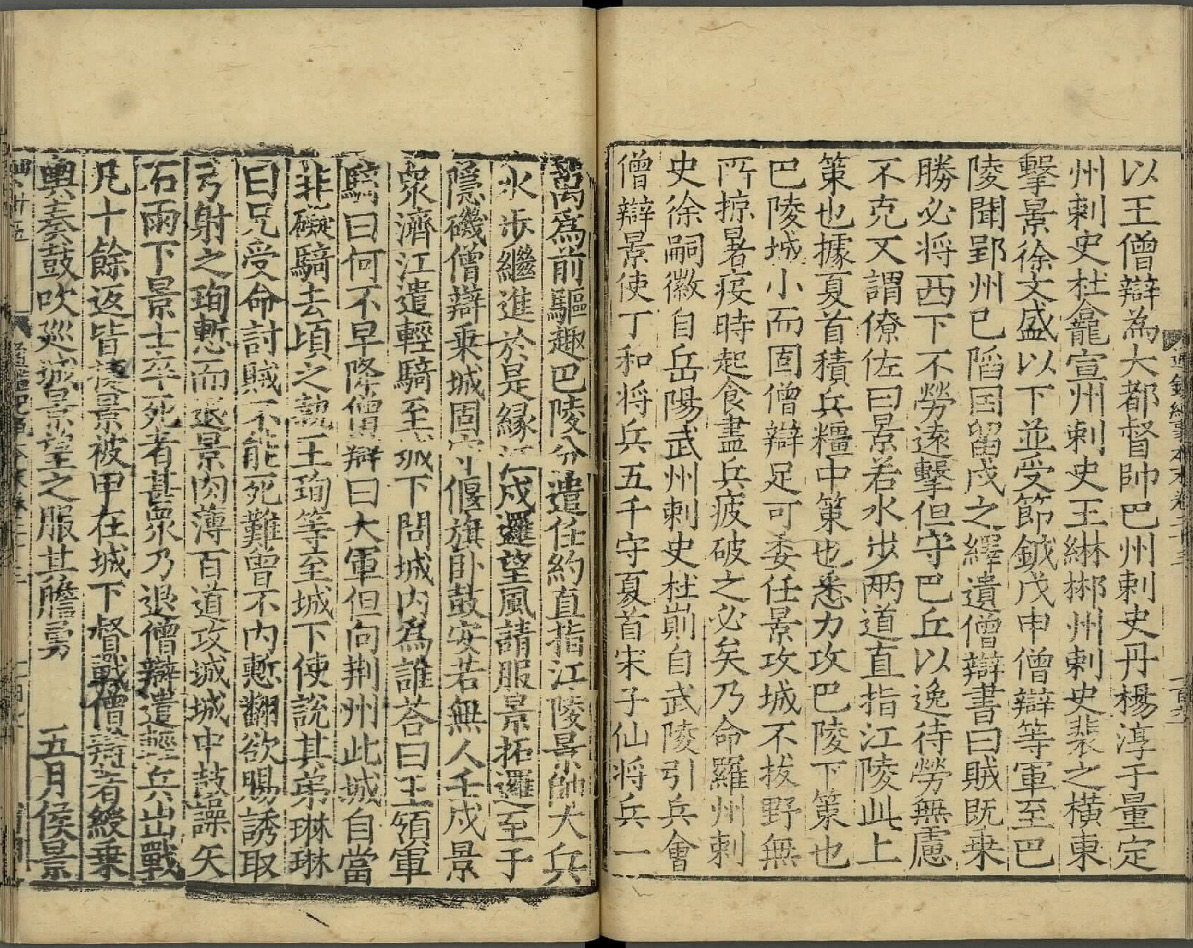 以王僧辯為大都督帥巴州刺史丹楊淳于量定
州刺史杜龕宣州刺史王綝郴州刺史裴之橫東
擊景徐文盛以下並受節鉞戊申僧辯等軍至巴
陵聞郢州已陷因留戍之繹遺僧辯書曰賊既乗
勝必将西下不勞遠擊但守巴丘以逸待勞無慮
不克又謂僚佐曰景若水步两道直指江陵此上
策也據夏首積兵糧中策也悉力攻巴陵下策也
巴陵城小而固僧辯足可委任景攻城不拔野無
所掠暑疫時起食盡兵疲破之必矣乃命羅州刺
史徐嗣徽自岳陽武州刺史杜崱自武陵引兵會
僧辯景使丁和将兵五千守夏首宋子仙将兵一
萬為前驅趣巴陵分遣任約直指江陵景帥大兵
水步繼進於是緣江戍邏望風請服景拓邏至于
隱磯僧辯乗城固守偃旗卧鼓安若無人壬戌景
衆濟江遣輕騎至城下問城内為誰荅曰王領軍
騎曰何不早降僧辯曰大軍但向荆州此城自當
非礙騎去頃之執王珣等至城下使說其弟琳琳
曰兄受命討賊不能死難曽不内慙翻欲賜誘取
弓射之珣慙而退景肉薄百道攻城城中鼓譟矢
石雨下景士卒死者甚衆乃退僧辯遣輕兵出戰
凡十餘返皆捷景被甲在城下督戰僧辯着綬乗
輿奏鼓吹巡城景望之服其膽勇　五月侯景